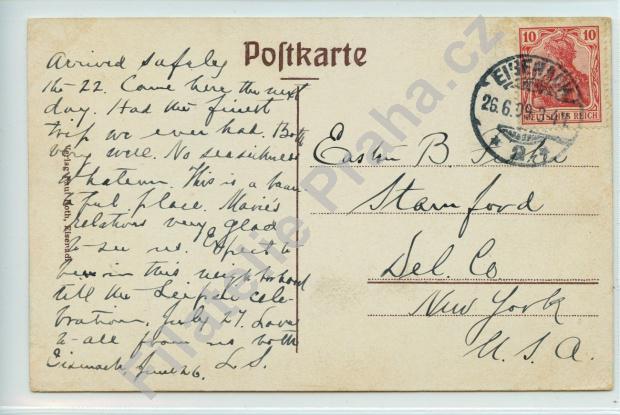 Postkarte
Arrived safely
the 22. Came here the next
day. Had the finest
trip we ever had. Both
very well. No seasickness
whatever. This is a beau-
tiful place. Marie's
relations very glad
to see us. Expect to
be in this neighborhood
till the Leipzic cele-
bration, July 27. Love
to all from us both
Eisenach, June 26. L S.
Easton B.
Stamford
Del Co
New York
U. S. A.
10 10
DEUTSCHES REICH
EISENACH
26.6.09
Eisenach
Filatelie Praha.cz